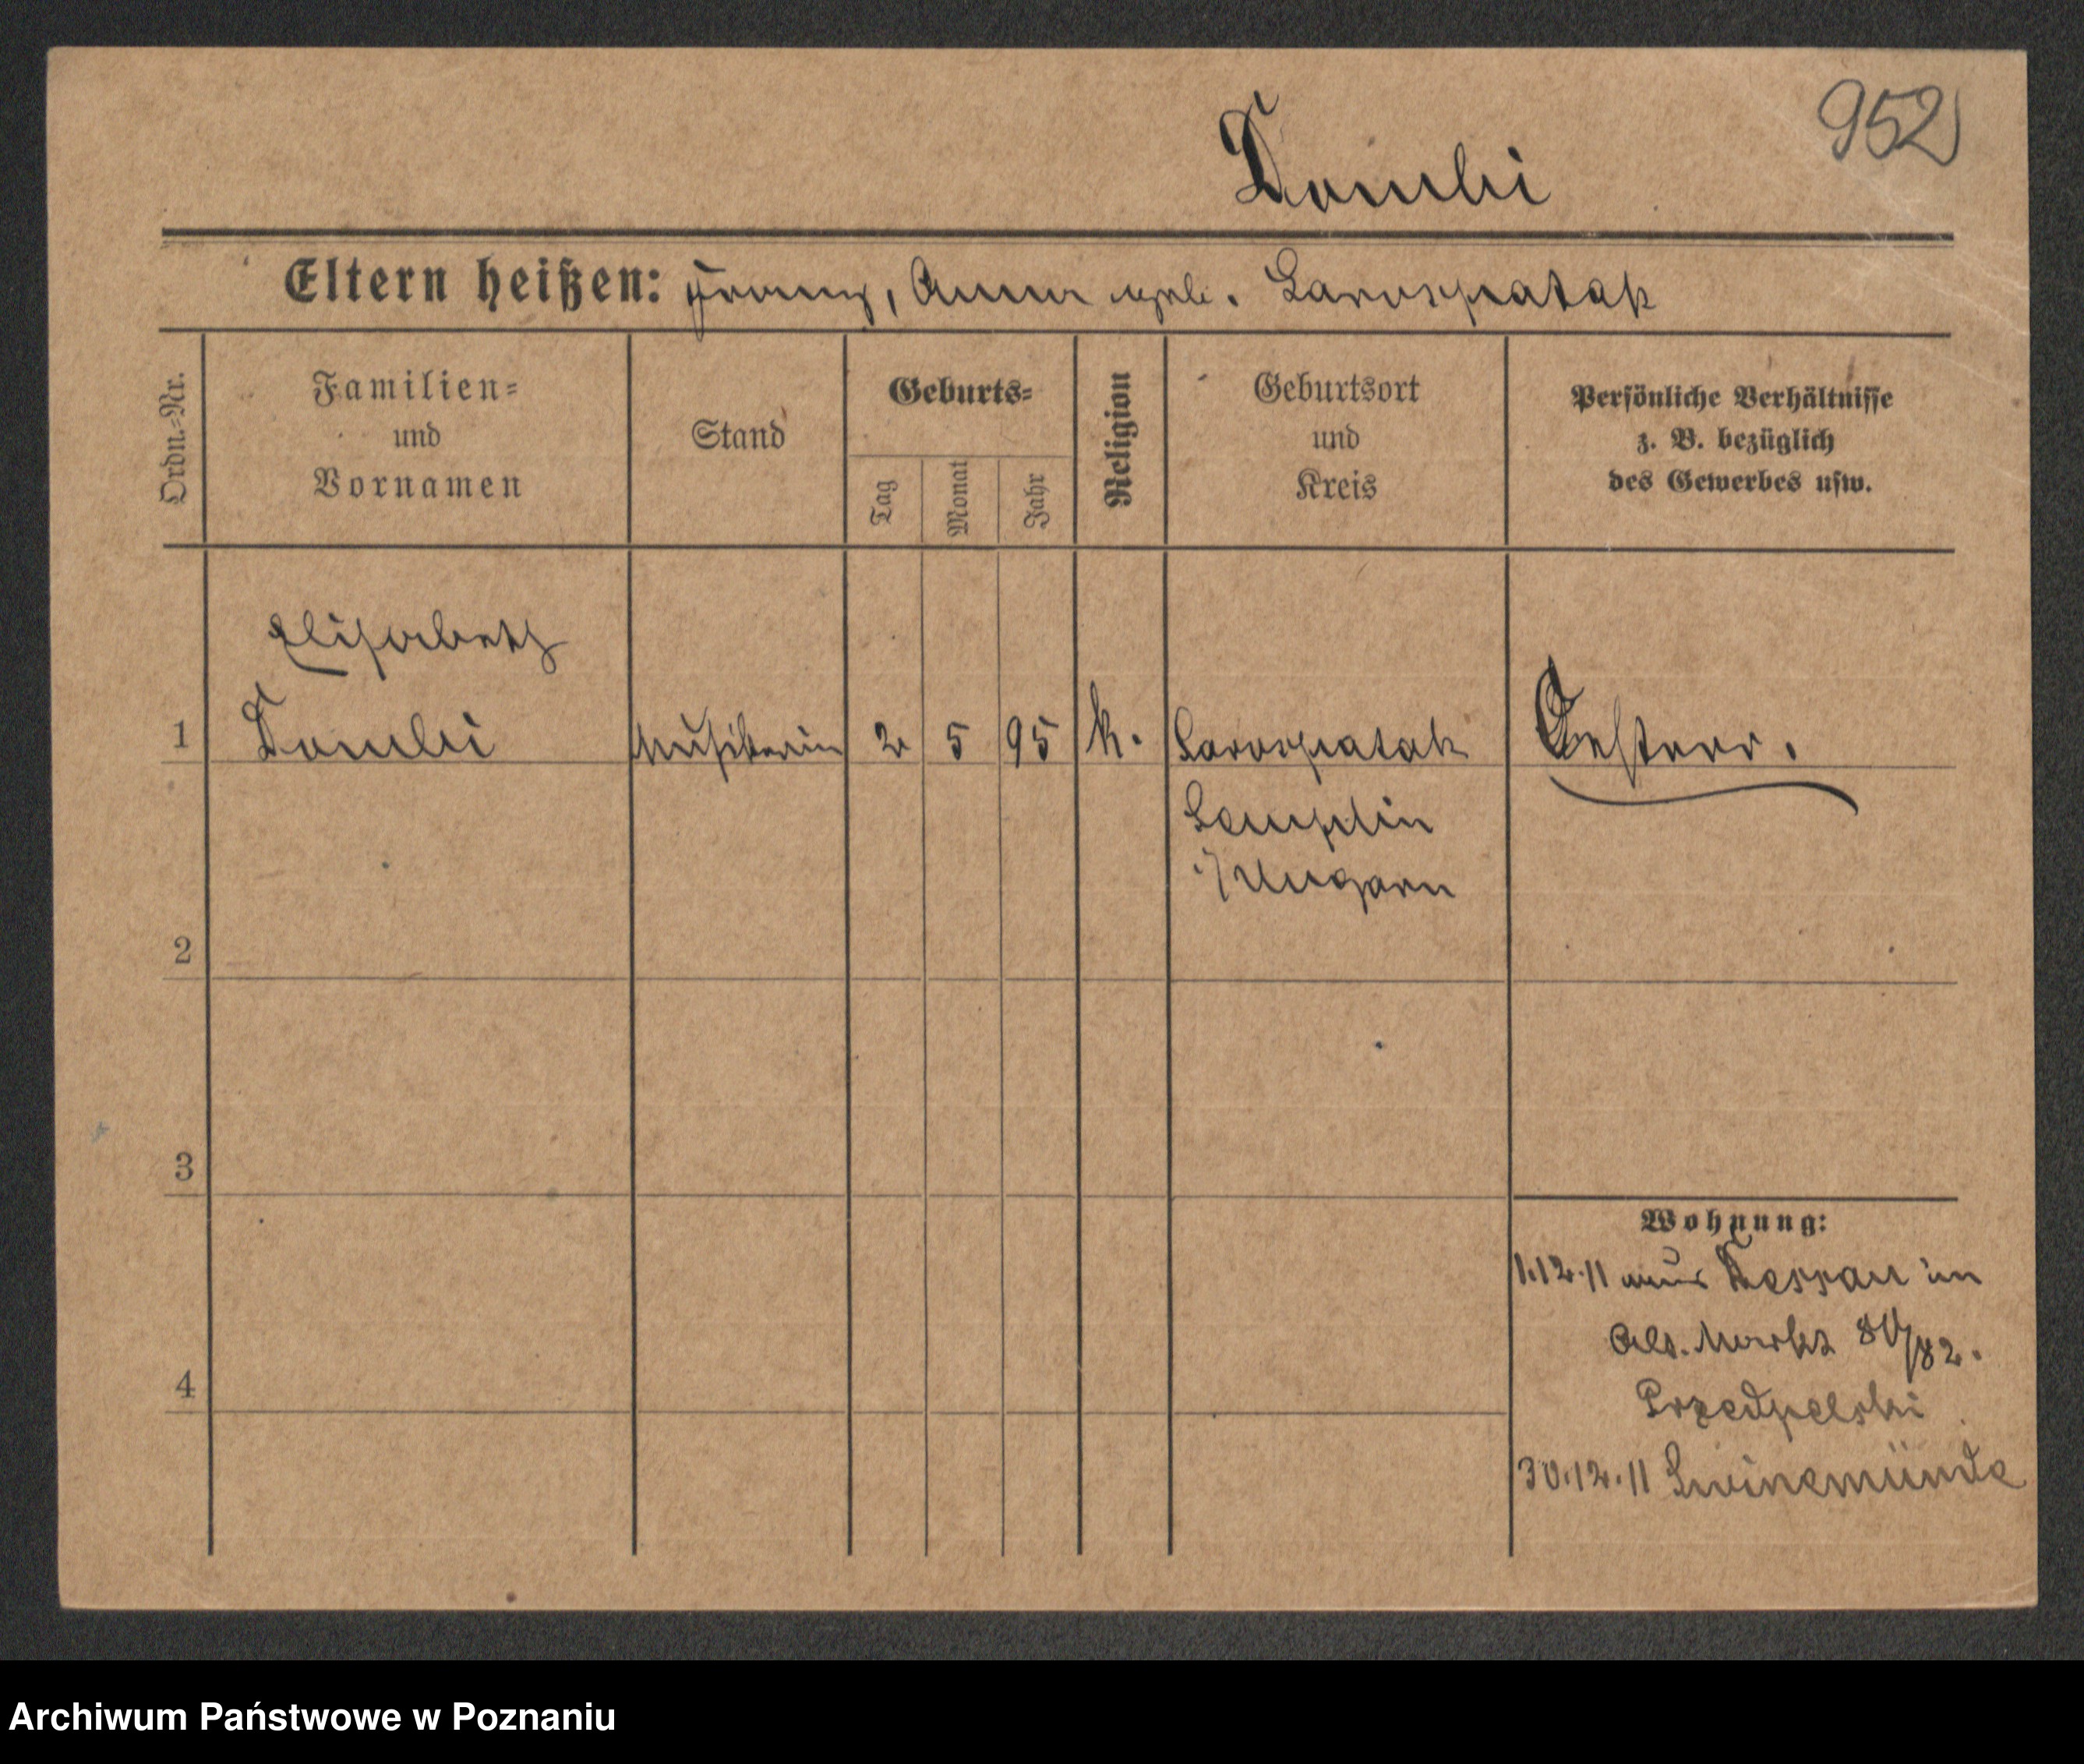 952
Dombi
Eltern heißen: Franz, Anna geb. Sarospatak
Ordn.-Nr.
Familien-
und
Vornamen
Stand
Geburts-
Tag
Monat
Jahr
Religion
Geburtsort
und
Kreis
Persönliche Verhältnisse
z. B. bezüglich
des Gewerbes usw.
Elisabeth
1 Dombi Musikerin 2 5 95 k. Sarospatak Oesterr.
Semplin
i/Ungarn
2
3
4
Wohnung:
1.12.11 aus Dessau in
Alt. Markt 80/82.
Przedpelski
30.12.11 Swinemünde
Archiwum Państwowe w Poznaniu